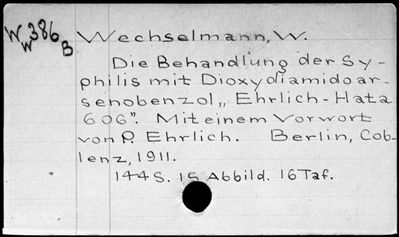 W386 Wechselmann, W.
W B
Die Behandlung der Sy-
philis mit Dioxydiamidoar-
senobenzol „ Ehrlich-Hata
606". Mit einem Vorwort
von P. Ehrlich. Berlin, Cob-
lenz, 1911.
144 S. 15 Abbild. 16 Taf.